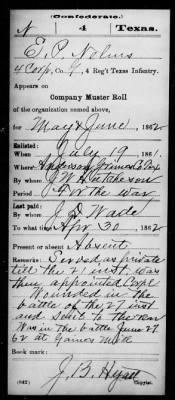 (Confederate.)
N 4 Texas.
E. P. Nelms
4 Corp, Co. G, 4 Reg't Texas Infantry.
Appears on
Company Muster Roll
of the organization named above,
for May & June, 1862
Enlisted:
When July 19, 1861.
Where Anderson Grimes Co Tex
By whom J. W. Hutcheson
Period For the war
Last paid:
By whom J. D. Wade
To what time Apr 30, 1862
Present or absent Absent
Remarks: Served as private
till the 21 inst. was
then appointed Corpl
Wounded in the
battle of the 27 inst
and sent to the rear
Was in the battle June 27
62 at Gaines Mill
Book mark:
(642) J. B. Hyatt
Copyist.